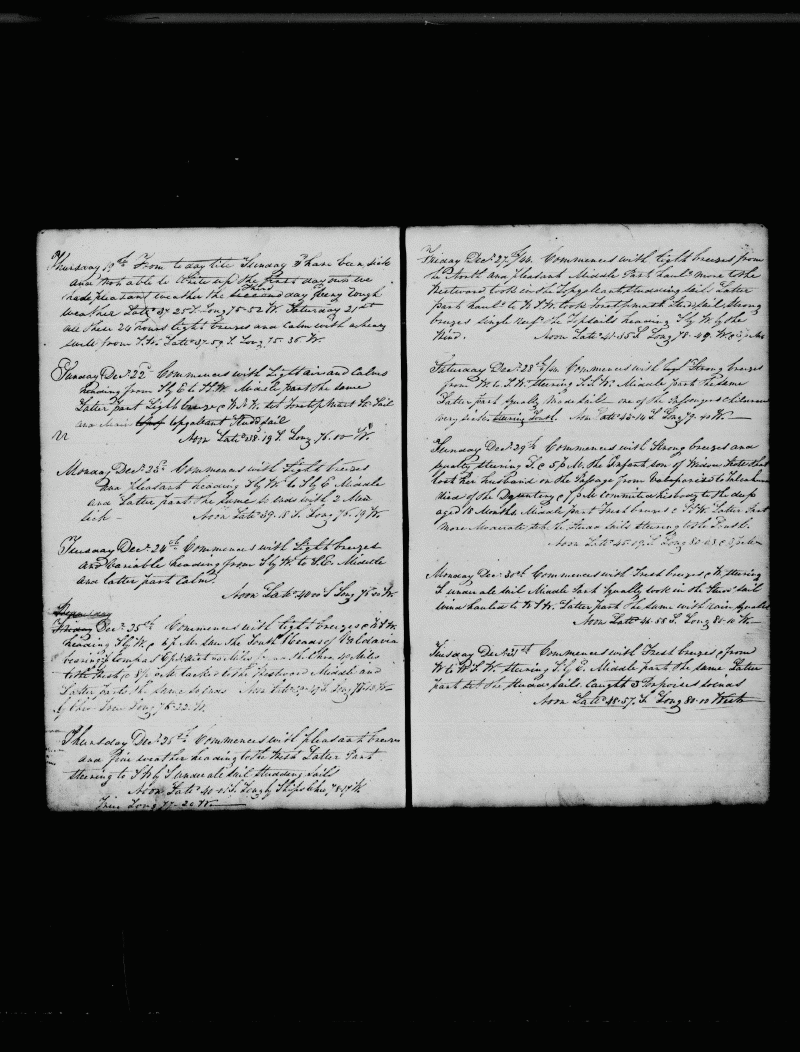 Thursday 19th From to day till Sunday I have been sick
and not able to write up the first day was we
had pleasant weather the second day Third very rough
weather Latd 37-25 S. Long 75-52 W. Saturday 21st
all these 24 hours light breezes and Calm with a heavy
swell from S.W. Latd 37-59 S. Long 75-36 W.
Sunday Decr 22d Commences with Light air and Calms
heading from S by E to S.S.W. Middle part the same
Latter part Light breeze
and Main Topgallant Studdsail
Noon Latd 38-19 S. Long 76-00 W.
Monday Decr 23d Commences with Light breezes
and pleasant heading S by W to S by E. Middle
and Latter part the same so ends with 2 Men
sick – Noon Latd 39-18 S. Long 76-19 W.
Tuesday Decr 24th Commences with Light breezes
and variable heading from S by W. to S.E. Middle
and latter part Calm
Noon Latd 40-00 S Long 76-30 W.
Friday Decr 25th Commences with light breezes @ W.S.W.
heading S by W. @ 4 P.M. saw the South Heads of Valdavia
bearing by Compass
to the West @ 8 P.M. tacked to the Westward Middle and
Latter part the same so ends Noon
True Long 76-32 W.
Thursday Decr 26th Commences with pleasant breezes
and fine weather heading to the West Latter Part
steering to S W by S under all sail Studding sails
Noon Latd 40-01 S. Long by Ship
True Long 77-20 W.
Friday Decr 27th/44 Commences with light breezes from
the North and pleasant Middle Part hauls more to the
Westward took in the Topgallant studding sails Latter
part hauls to W.S.W. took Fore topmast Studdsail, Strong
breezes single reeft the Topsails heading S by W. by the
Wind. Noon Latd 41-35 S. Long 78-49 W.
Saturday Decr 28th/44 Commences with Strong breezes
from W. to S.W. steering S.S.W. Middle part the same
Latter part Squally Made sail – one of the Passengers Children
very sick Noon Latd 43-14 S. Long 79-40 W.
Sunday Decr 29th Commences with Strong breezes and
squally steering S. @ 5 P.M. the Infant son of Widow
lost her husband on the Passage from Valparaiso to Talcahuano
died of the Dysentery @ 7 P.M. committed his body to the deep
aged 18 Months. Middle part Fresh breezes @ S.S.W. Latter Part
more Moderate set the Studd Sails steering
Noon Latd 45-19 S. Long 80-03
Monday Decr 30th Commences with Fresh breezes @ W. steering
S under all sail Middle Part Squally took in the Studd Sail
wind hauled to W.S.W. Latter part the same with rain Squalls
Noon Latd 46-55 S. Long 80-10 W.
Tuesday Decr 31st Commences with Fresh breezes @ from
W. to W.S.W. steering S. by E. Middle part the same Latter
part set the Studd sails caught 3 Porpoises so ends
Noon Latd 48-57 S. Long 80-10 West